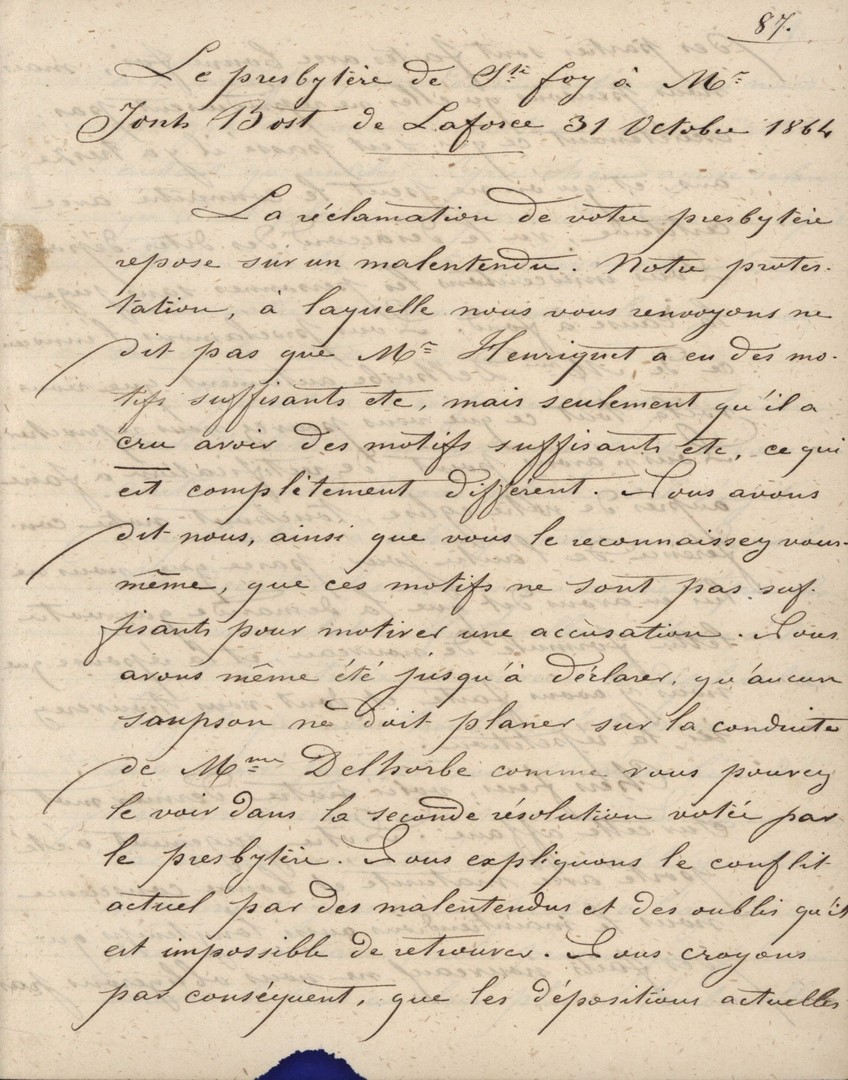 87.
Le presbytère de Ste foy à Mr
John Bost de Laforce 31 Octobre 1864
La réclamation de votre presbytère
repose sur un malentendu. Notre protes-
tation, à laquelle nous vous renvoyons ne
dit pas que Mr Henriquet a eu des mo-
tifs suffisants etc, mais seulement qu'il a
cru avoir des motifs suffisants etc, ce qui
est complètement différent. Nous avons
dit nous, ainsi que vous le reconnaissez vous-
même, que ces motifs ne sont pas suf-
fisants pour motiver une accusation. Nous
avons même été jusqu'à déclarer, qu'aucun
soupson ne doit planer sur la conduite
de Mme Delhorbe comme vous pouvez
le voir dans la seconde résolution votée par
le presbytère. Nous expliquons le conflit
actuel par des malentendus et des oublis qu'il
est impossible de retrouver. Nous croyons
par conséquent, que les dépositions actuelles